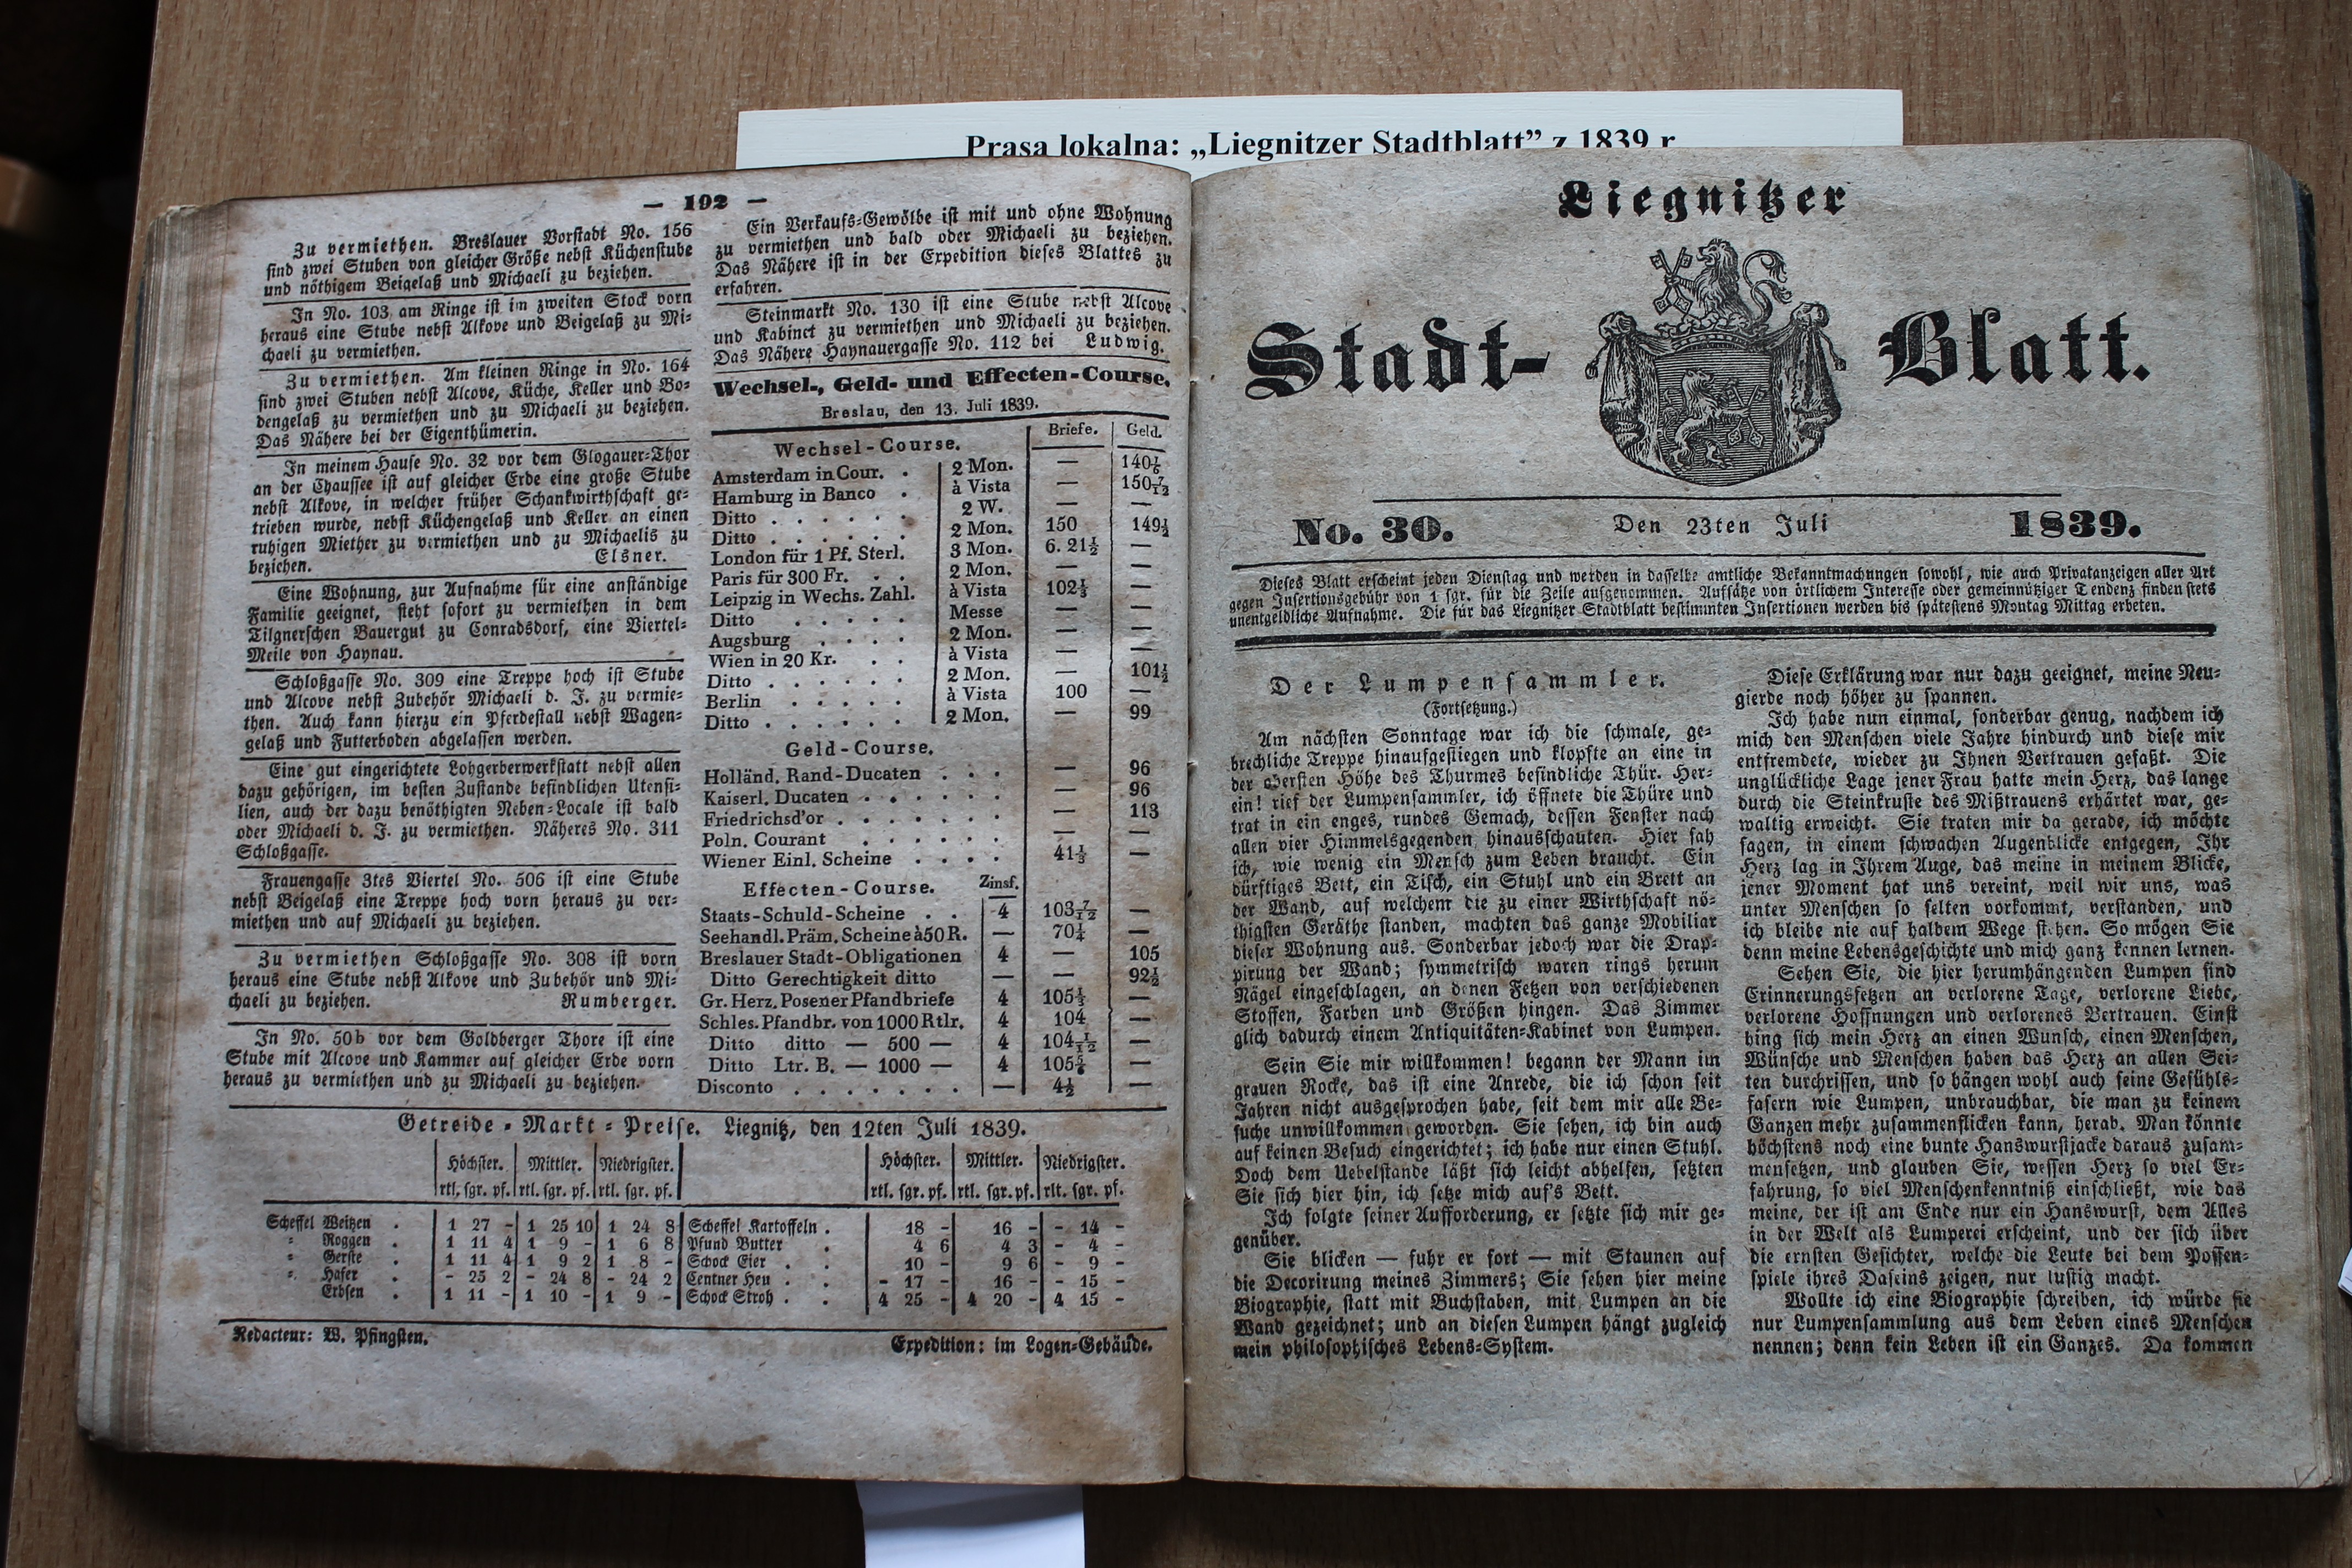 Prasa lokalna: „Liegnitzer Stadtblatt” z 1839 r
— 192 —
Zu vermiethen. Breslauer Vorstadt No. 156
sind zwei Stuben von gleicher Größe nebst Küchenstube
und nöthigem Beigelaß und Michaeli zu beziehen.
In No. 103 am Ringe ist im zweiten Stock vorn
heraus eine Stube nebst Alkove und Beigelaß zu Mi-
chaeli zu vermiethen.
Zu vermiethen. Am kleinen Ringe in No. 164
sind zwei Stuben nebst Alcove, Küche, Keller und Bo-
dengelaß zu vermiethen und zu Michaeli zu beziehen.
Das Nähere bei der Eigenthümerin.
In meinem Hause No. 32 vor dem Glogauer-Thor
an der Chaussee ist auf gleicher Erde eine große Stube
nebst Alkove, in welcher früher Schankwirthschaft ge-
trieben wurde, nebst Küchengelaß und Keller an einen
ruhigen Miether zu vermiethen und zu Michaelis zu
beziehen. Elsner.
Eine Wohnung, zur Aufnahme für eine anständige
Familie geeignet, steht sofort zu vermiethen in dem
Tilgnerschen Bauergut zu Conradsdorf, eine Viertel-
Meile von Haynau.
Schloßgasse No. 309 eine Treppe hoch ist Stube
und Alcove nebst Zubehör Michaeli d. J. zu vermie-
then. Auch kann hierzu ein Pferdestall nebst Wagen-
gelaß und Futterboden abgelassen werden.
Eine gut eingerichtete Lohgerberwerkstatt nebst allen
dazu gehörigen, im besten Zustande befindlichen Utensi-
lien, auch der dazu benöthigten Neben-Locale ist bald
oder Michaeli d. J. zu vermiethen. Näheres No. 311
Schloßgasse.
Frauengasse 3tes Viertel No. 506 ist eine Stube
nebst Beigelaß eine Treppe hoch vorn heraus zu ver-
miethen und auf Michaeli zu beziehen.
Zu vermiethen Schloßgasse No. 308 ist vorn
heraus eine Stube nebst Alkove und Zubehör und Mi-
chaeli zu beziehen. Rumberger.
In No. 50b vor dem Goldberger Thore ist eine
Stube mit Alcove und Kammer auf gleicher Erde vorn
heraus zu vermiethen und zu Michaeli zu beziehen.
Ein Verkaufs-Gewölbe ist mit und ohne Wohnung
zu vermiethen und bald oder Michaeli zu beziehen.
Das Nähere ist in der Expedition dieses Blattes zu
erfahren.
Steinmarkt No. 130 ist eine Stube nebst Alcove
und Kabinet zu vermiethen und Michaeli zu beziehen.
Das Nähere Haynauergasse No. 112 bei Ludwig.
Wechsel-, Geld- und Effecten-Course.
Breslau, den 13. Juli 1839.
Wechsel-Course. Briefe. Geld.
Amsterdam in Cour. . 2 Mon. — 140 1/6
Hamburg in Banco . à Vista — 150 7/12
Ditto . . . . . . 2 W. — —
Ditto . . . . . . 2 Mon. 150 149 1/2
London für 1 Pf. Sterl. 3 Mon. 6. 21 1/2 —
Paris für 300 Fr. . . 2 Mon. — —
Leipzig in Wechs. Zahl. à Vista 102 1/3 —
Ditto . . . . . Messe — —
Augsburg . . . . 2 Mon. — —
Wien in 20 Kr. . . à Vista — —
Ditto . . . . . . 2 Mon. — 101 1/2
Berlin . . . . . à Vista 100 —
Ditto . . . . . . 2 Mon. — 99
Geld-Course.
Holländ. Rand-Ducaten . . . — 96
Kaiserl. Ducaten . . . . . . — 96
Friedrichsd'or . . . . . . . — 113
Poln. Courant . . . . . . — —
Wiener Einl. Scheine . . . . 41 1/3 —
Effecten-Course. Zinsf.
Staats-Schuld-Scheine . . 4 103 7/12 —
Seehandl. Präm. Scheine à 50 R. — 70 1/4 —
Breslauer Stadt-Obligationen 4 — 105
Ditto Gerechtigkeit ditto — — 92 1/2
Gr. Herz. Posener Pfandbriefe 4 105 1/3 —
Schles. Pfandbr. von 1000 Rtlr. 4 104 —
Ditto ditto — 500 — 4 104 1/12 —
Ditto Ltr. B. — 1000 — 4 105 —
Disconto . . . . . . — 4 1/2 —
Getreide-Markt-Preise. Liegnitz, den 12ten Juli 1839.
Höchster. Mittler. Niedrigster. Höchster. Mittler. Niedrigster.
rtl. sgr. pf. rtl. sgr. pf. rtl. sgr. pf. rtl. sgr. pf. rtl. sgr. pf. rlt. sgr. pf.
Scheffel Weitzen . 1 27 - 1 25 10 1 24 8 Scheffel Kartoffeln . 18 - 16 - - 14 -
" Roggen . 1 11 4 1 9 - 1 6 8 Pfund Butter . 4 6 4 3 - 4 -
" Gerste . 1 11 4 1 9 2 1 8 - Schock Eier . . 10 - 9 6 - 9 -
" Hafer . - 25 2 - 24 8 - 24 2 Centner Heu . . - 17 - 16 - - 15 -
Erbsen . 1 11 - 1 10 - 1 9 - Schock Stroh . . 4 25 - 4 20 - 4 15 -
Redacteur: W. Pfingsten. Expedition: im Logen-Gebäude.
Liegnitzer
Stadt- Blatt.
No. 30. Den 23ten Juli 1839.
Dieses Blatt erscheint jeden Dienstag und werden in dasselbe amtliche Bekanntmachungen sowohl, wie auch Privatanzeigen aller Art
gegen Insertionsgebühr von 1 sgr. für die Zeile aufgenommen. Aufsätze von örtlichem Interesse oder gemeinnütziger Tendenz finden stets
unentgeldliche Aufnahme. Die für das Liegnitzer Stadtblatt bestimmten Insertionen werden bis spätestens Montag Mittag erbeten.
Der Lumpensammler.
(Fortsetzung.)
Am nächsten Sonntage war ich die schmale, ge-
brechliche Treppe hinaufgestiegen und klopfte an eine in
der obersten Höhe des Thurmes befindliche Thür. Her-
ein! rief der Lumpensammler, ich öffnete die Thüre und
trat in ein enges, rundes Gemach, dessen Fenster nach
allen vier Himmelsgegenden hinausschauten. Hier sah
ich, wie wenig ein Mensch zum Leben braucht. Ein
dürftiges Bett, ein Tisch, ein Stuhl und ein Brett an
der Wand, auf welchem die zu einer Wirthschaft nö-
thigsten Geräthe standen, machten das ganze Mobiliar
dieser Wohnung aus. Sonderbar jedoch war die Drap-
pirung der Wand; symmetrisch waren rings herum
Nägel eingeschlagen, an denen Fetzen von verschiedenen
Stoffen, Farben und Größen hingen. Das Zimmer
glich dadurch einem Antiquitäten-Kabinet von Lumpen.
Sein Sie mir willkommen! begann der Mann im
grauen Rocke, das ist eine Anrede, die ich schon seit
Jahren nicht ausgesprochen habe, seit dem mir alle Be-
suche unwillkommen geworden. Sie sehen, ich bin auch
auf keinen Besuch eingerichtet; ich habe nur einen Stuhl.
Doch dem Uebelstande läßt sich leicht abhelfen, setzten
Sie sich hier hin, ich setze mich auf's Bett.
Ich folgte seiner Aufforderung, er setzte sich mir ge-
genüber.
Sie blicken — fuhr er fort — mit Staunen auf
die Decorirung meines Zimmers; Sie sehen hier meine
Biographie, statt mit Buchstaben, mit Lumpen an die
Wand gezeichnet; und an diesen Lumpen hängt zugleich
mein philosophisches Lebens-System.
Diese Erklärung war nur dazu geeignet, meine Neu-
gierde noch höher zu spannen.
Ich habe nun einmal, sonderbar genug, nachdem ich
mich den Menschen viele Jahre hindurch und diese mir
entfremdete, wieder zu Ihnen Vertrauen gefaßt. Die
unglückliche Lage jener Frau hatte mein Herz, das lange
durch die Steinkruste des Mißtrauens erhärtet war, ge-
waltig erweicht. Sie traten mir da gerade, ich möchte
sagen, in einem schwachen Augenblicke entgegen, Ihr
Herz lag in Ihrem Auge, das meine in meinem Blicke,
jener Moment hat uns vereint, weil wir uns, was
unter Menschen so selten vorkommt, verstanden, und
ich bleibe nie auf halbem Wege stehen. So mögen Sie
denn meine Lebensgeschichte und mich ganz kennen lernen.
Sehen Sie, die hier herumhängenden Lumpen sind
Erinnerungsfetzen an verlorene Tage, verlorene Liebe,
verlorene Hoffnungen und verlorenes Vertrauen. Einst
hing sich mein Herz an einen Wunsch, einen Menschen,
Wünsche und Menschen haben das Herz an allen Sei-
ten durchrissen, und so hängen wohl auch seine Gefühls-
fasern wie Lumpen, unbrauchbar, die man zu keinem
Ganzen mehr zusammenflicken kann, herab. Man könnte
höchstens noch eine bunte Hanswurstjacke daraus zusam-
mensetzen, und glauben Sie, wessen Herz so viel Er-
fahrung, so viel Menschenkenntniß einschließt, wie das
meine, der ist am Ende nur ein Hanswurst, dem Alles
in der Welt als Lumperei erscheint, und der sich über
die ernsten Gesichter, welche die Leute bei dem Possen-
spiele ihres Daseins zeigen, nur lustig macht.
Wollte ich eine Biographie schreiben, ich würde sie
nur Lumpensammlung aus dem Leben eines Menschen
nennen; denn kein Leben ist ein Ganzes. Da kommen